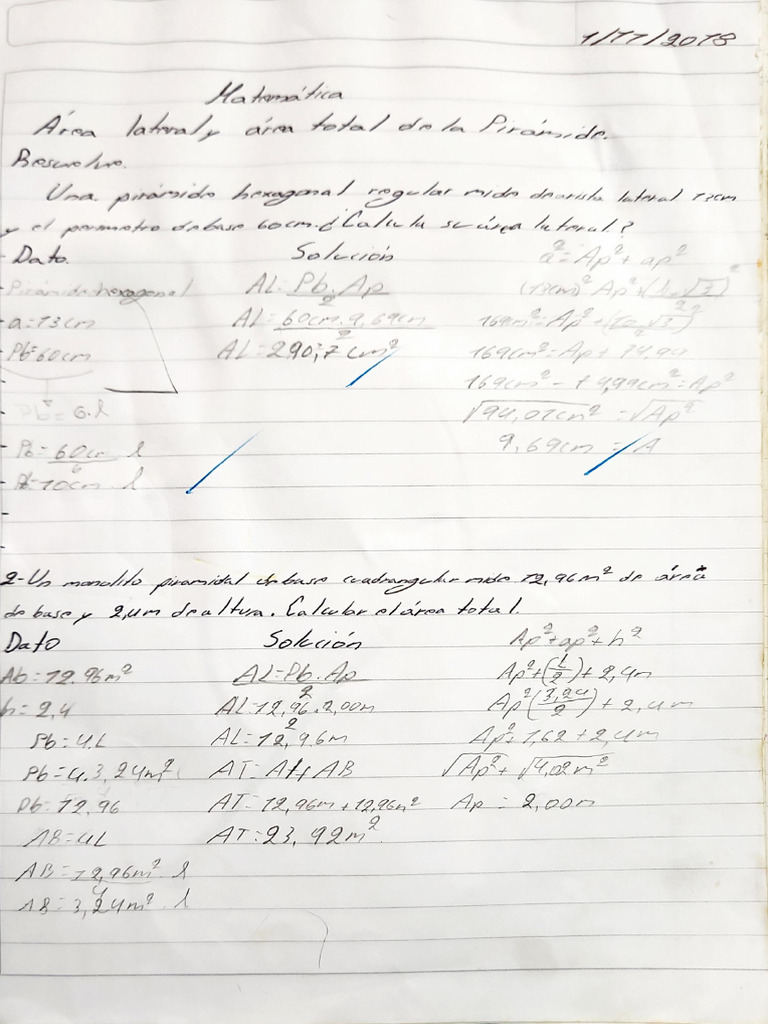 1/11/2018
Matemática
Área lateral y área total de la Pirámide.
Resuelve.
Una pirámide hexagonal regular mide de arista lateral 13cm
y el perimetro de base 60cm. ¿Calcula su área lateral?
Dato
Pirámide hexagonal
a=13cm
Pb=60cm
Pb=6.l
Pb=60cm l
6
Pb=10cm l
Solución
AL=Pb.Ap
2
AL=60cm.9,69cm
2
AL=290,7cm²
a²=Ap²+ap²
169cm²=Ap+74.99
169cm²-74,99cm²=Ap²
√94,01cm²=√Ap²
9,69cm=A
2-Un monolito piramidal de base cuadrangular mide 12,96m² de área
de base y 2,4m de altura. Calcular el área total.
Dato
Ab=12.96m²
h=2,4
Pb=4.L
Pb=4.3,24m²
Pb=12,96
AB=4L
AB=12,96m².l
4
AB=3,24m².l
Solución
AL=Pb.Ap
2
AL=12,96.2,00m
2
AL=12,96m
AT=AL+AB
AT=12,96m+12,96m²
AT=23,92m²
Ap²+ap²+h²
Ap²+(L/2)+2,4m
Ap²(3,24/2)+2,4m
Ap²+1,62+2,4m
√Ap²+√4,02m²
Ap=2,00m